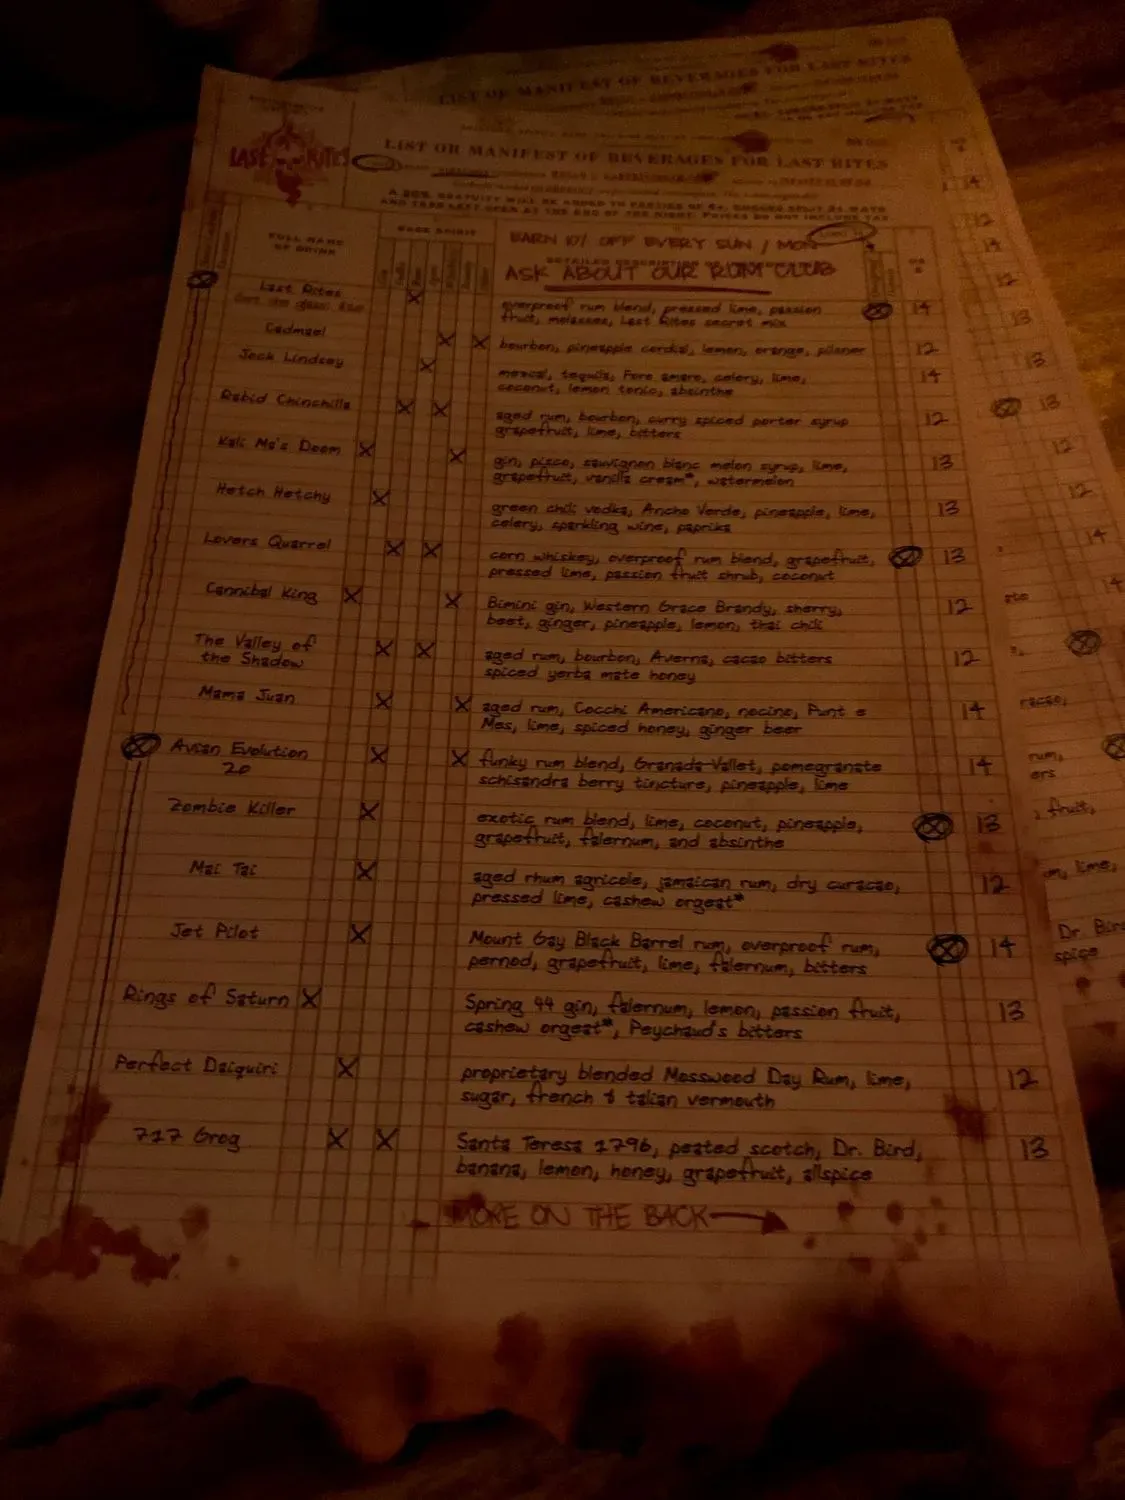 LIST OR MANIFEST OF BEVERAGES FOR LAST RITES
LAST RITES
LIST OR MANIFEST OF BEVERAGES FOR LAST RITES
A 20% GRATUITY WILL BE ADDED TO PARTIES OF 6+.
AND TABS LEFT OPEN AT THE END OF THE NIGHT. PRICES DO NOT INCLUDE TAX
FULL NAME
OF DRINK
BASE SPIRIT
EARN 10% OFF EVERY SUN / MON
DETAILED DESCRIPTION
ASK ABOUT OUR RUM CLUB
Last Rites
overproof rum blend, pressed lime, passion
fruit, molasses, Last Rites secret mix
14
Cadmael
bourbon, pineapple cordial, lemon, orange, pilsner
12
Jack Lindsey
mezcal, tequila, Fore amaro, celery, lime,
coconut, lemon tonic, absinthe
14
Rabid Chinchilla
aged rum, bourbon, curry spiced porter syrup
grapefruit, lime, bitters
12
Kali Ma's Doom
gin, pisco, sauvignon blanc melon syrup, lime,
grapefruit, vanilla cream*, watermelon
13
Hetch Hetchy
green chili vodka, Ancho Verde, pineapple, lime,
celery, sparkling wine, paprika
13
Lovers Quarrel
corn whiskey, overproof rum blend, grapefruit,
pressed lime, passion fruit shrub, coconut
13
Cannibal King
Bimini gin, Western Grace Brandy, sherry,
beet, ginger, pineapple, lemon, thai chili
12
The Valley of
the Shadow
aged rum, bourbon, Averna, cacao bitters
spiced yerba mate honey
12
Mama Juan
aged rum, Cocchi Americano, nocino, Punt e
Mes, lime, spiced honey, ginger beer
14
Avian Evolution
20
funky rum blend, Granada-Vallet, pomegranate
schisandra berry tincture, pineapple, lime
14
Zombie Killer
exotic rum blend, lime, coconut, pineapple,
grapefruit, falernum, and absinthe
13
Mai Tai
aged rhum agricole, jamaican rum, dry curacao,
pressed lime, cashew orgeat*
12
Jet Pilot
Mount Gay Black Barrel rum, overproof rum,
pernod, grapefruit, lime, falernum, bitters
14
Rings of Saturn
Spring 44 gin, falernum, lemon, passion fruit,
cashew orgeat*, Peychaud's bitters
13
Perfect Daiquiri
proprietary blended Mosswood Day Rum, lime,
sugar, french & talian vermouth
12
717 Grog
Santa Teresa 1796, peated scotch, Dr. Bird,
banana, lemon, honey, grapefruit, allspice
13
MORE ON THE BACK
14
12
14
12
13
13
13
12
12
14
14
racao,
rum,
ers
fruit,
m, lime,
Dr. Bird
spice